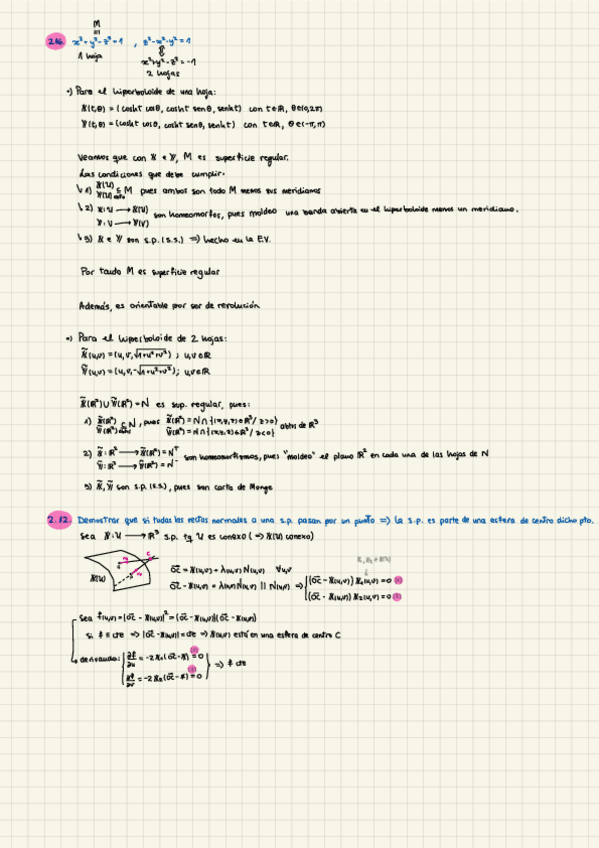 M
2.6. x²+y²-z²=1 , z²-x²-y²=1
1 hoja
x²+y²-z²=-1
2 hojas
•) Para el hiperboloide de una hoja:
𝕏(t,θ) = (cosht cosθ, cosht senθ, senht) con t∈ℝ, θ∈(0,2π)
𝕐(t,θ) = (cosht cosθ, cosht senθ, senht) con t∈ℝ, θ∈(-π,π)
Veamos que con 𝕏 e 𝕐, M es superficie regular.
Las condiciones que debe cumplir.
↳1) 𝕏(U) 𝕐(U) ⊆ M pues ambos son todo M menos sus meridianos
↳2) 𝕏: U → 𝕏(U)
𝕐: V → 𝕐(V) son homeomorfos, pues moldeo una banda abierta en el hiperboloide menos un meridiano.
↳3) 𝕏 e 𝕐 son s.p. (s.s.) => hecho en la E.V.
Por tanto M es superficie regular
Además, es orientable por ser de revolución
•) Para el hiperboloide de 2 hojas:
𝕏̃(u,v) = (u,v,√1+u²+v²) ; u,v∈ℝ
𝕐̃(u,v) = (u,v,-√1+u²+v²) ; u,v∈ℝ
𝕏̃(ℝ²) ∪ 𝕐̃(ℝ²) = N es sup. regular, pues:
1) 𝕏̃(ℝ²) 𝕐̃(ℝ²) ⊆ N, pues 𝕏̃(ℝ²) = N∩{(x,y,z)∈ℝ³/z>0}
𝕐̃(ℝ²) = N∩{(x,y,z)∈ℝ³/z<0} abtos de ℝ³
2) 𝕏̃: ℝ² → 𝕏̃(ℝ²) = N⁺
𝕐̃: ℝ² → 𝕐̃(ℝ²) = N⁻ son homeomorfismos, pues "moldeo" el plano ℝ² en cada una de las hojas de N
3) 𝕏̃, 𝕐̃ son s.p. (s.s.), pues son carta de Monge
2.12. Demostrar que si todas las rectas normales a una s.p. pasan por un punto => la s.p. es parte de una esfera de centro dicho pto.
Sea 𝕏: U → ℝ³ s.p. tq. U es conexo (=> 𝕏(U) conexo)
C
𝕏(U)
o͞c = 𝕏(u,v) + λ(u,v) N(u,v) ∀u,v
o͞c - 𝕏(u,v) = λ(u,v) N(u,v) || N(u,v) => (o͞c - 𝕏(u,v)) 𝕏₁(u,v) = 0
(o͞c - 𝕏(u,v)) 𝕏₂(u,v) = 0
Sea f(u,v) = |o͞c - 𝕏(u,v)|² = (o͞c - 𝕏(u,v))(o͞c - 𝕏(u,v))
si f = cte => |o͞c - 𝕏(u,v)| = cte => 𝕏(u,v) está en una esfera de centro C
derivando: ∂f/∂u = -2𝕏₁(o͞c - 𝕏) = 0
∂f/∂v = -2𝕏₂(o͞c - 𝕏) = 0 => f cte